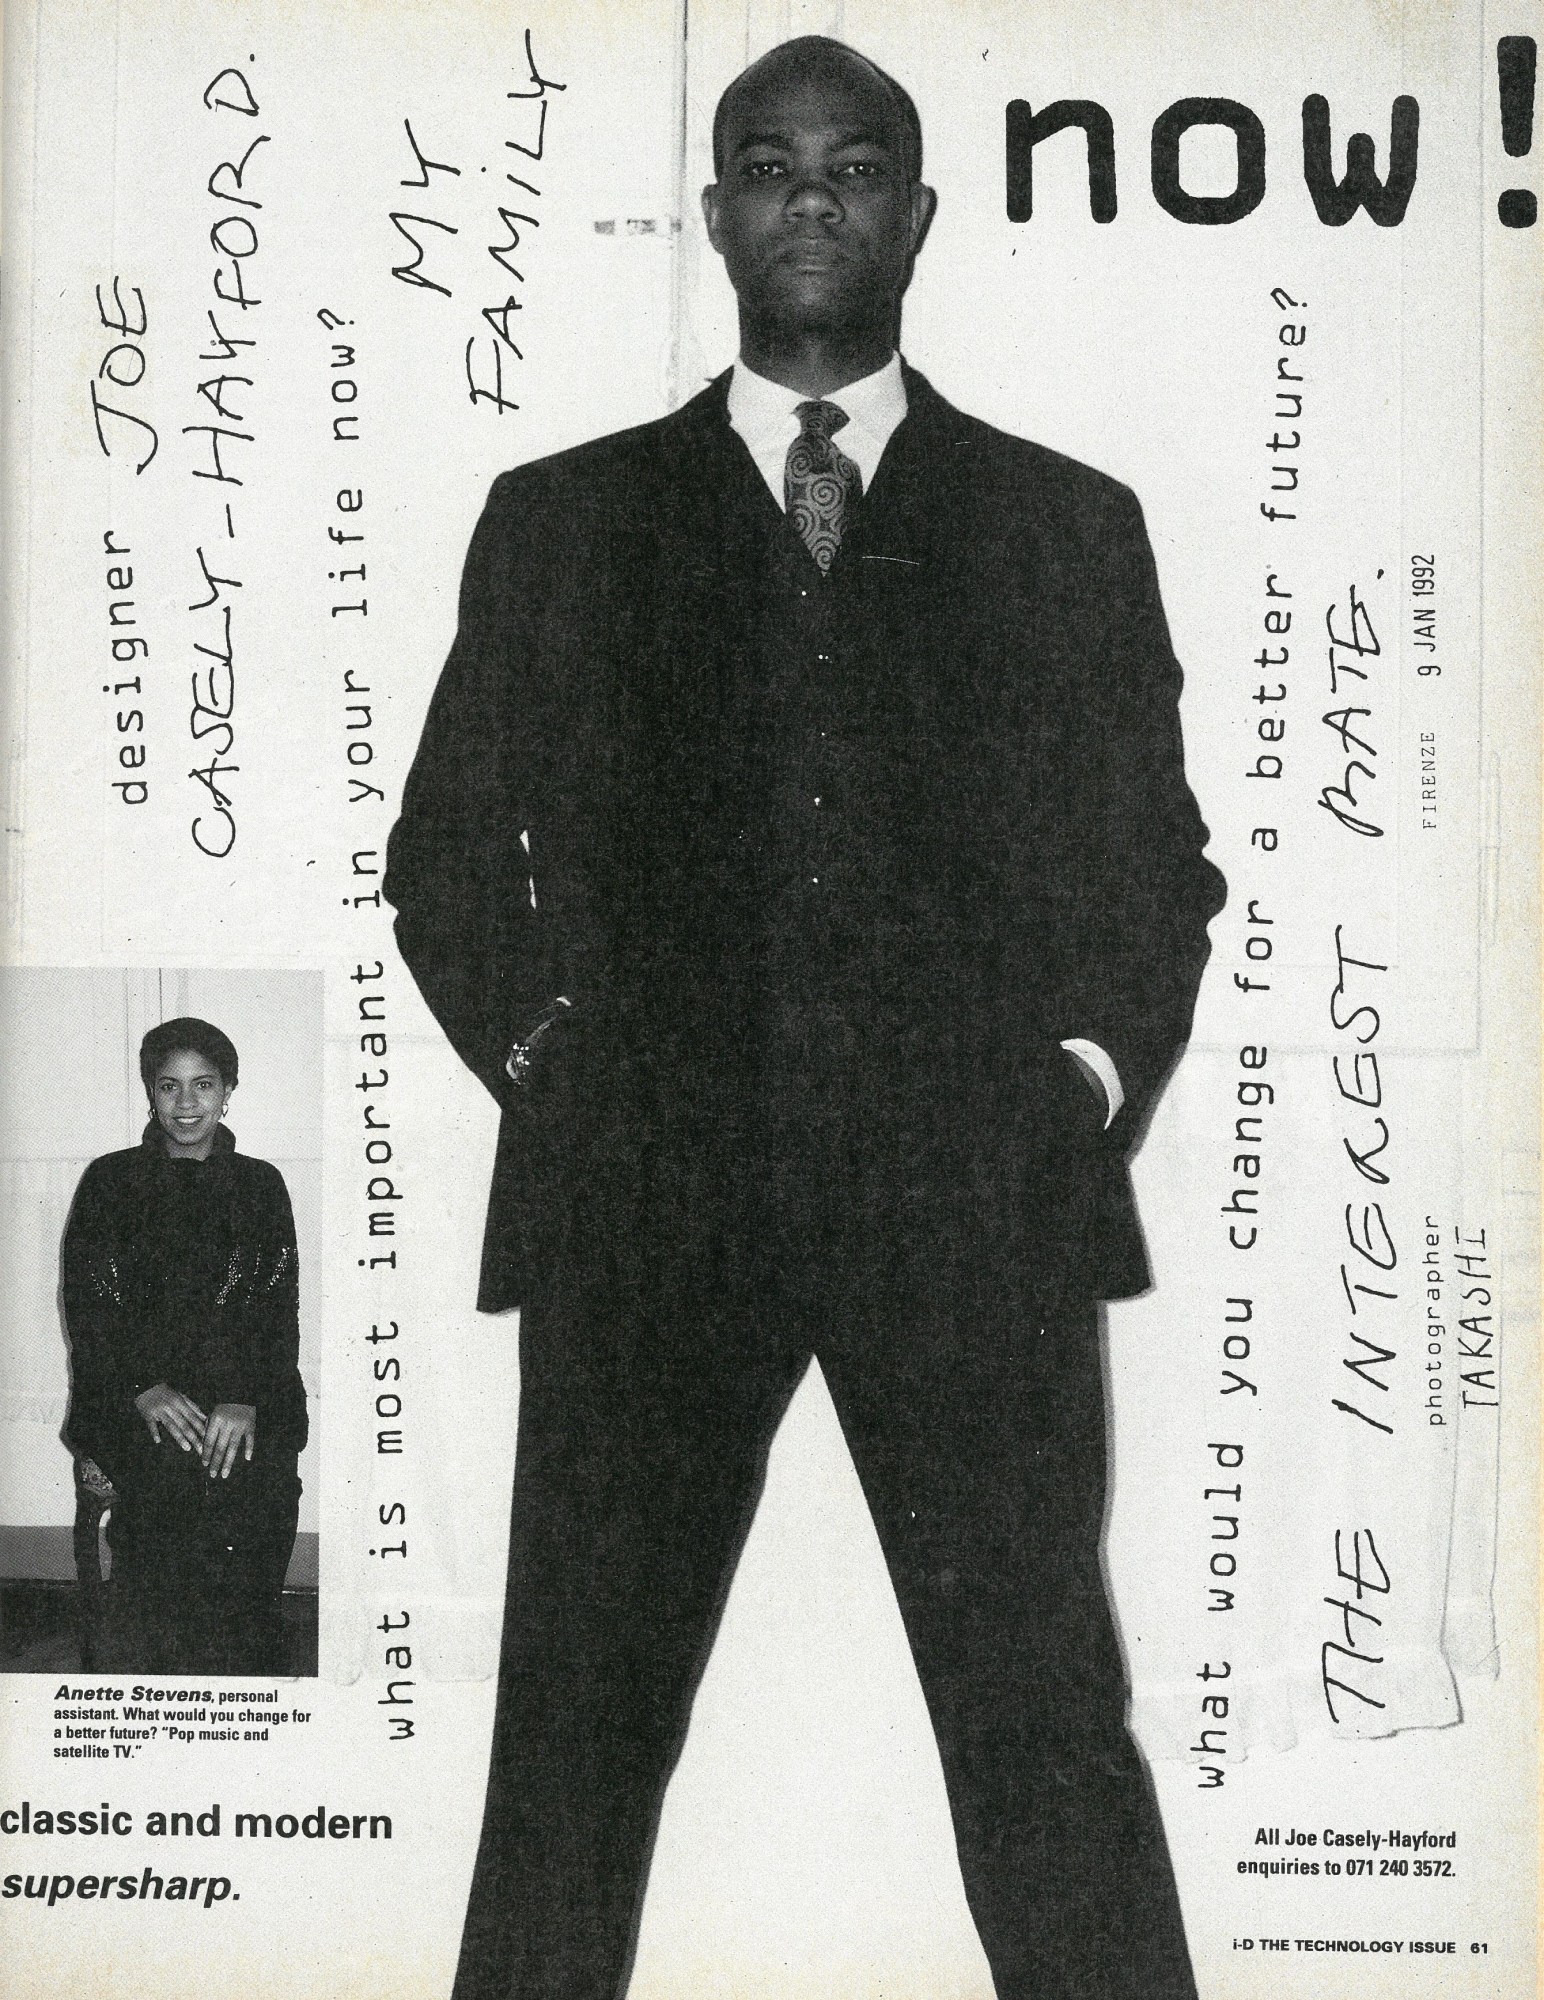 now!
designer JOE
CASELY-HAYFORD.
what is most important in your life now?
MY
FAMiLY
what would you change for a better future?
THE INTEREST RATE.
FIRENZE 9 JAN 1992
photographer
TAKASHI
Anette Stevens, personal
assistant. What would you change for
a better future? "Pop music and
satellite TV."
classic and modern
supersharp.
All Joe Casely-Hayford
enquiries to 071 240 3572.
i-D THE TECHNOLOGY ISSUE 61